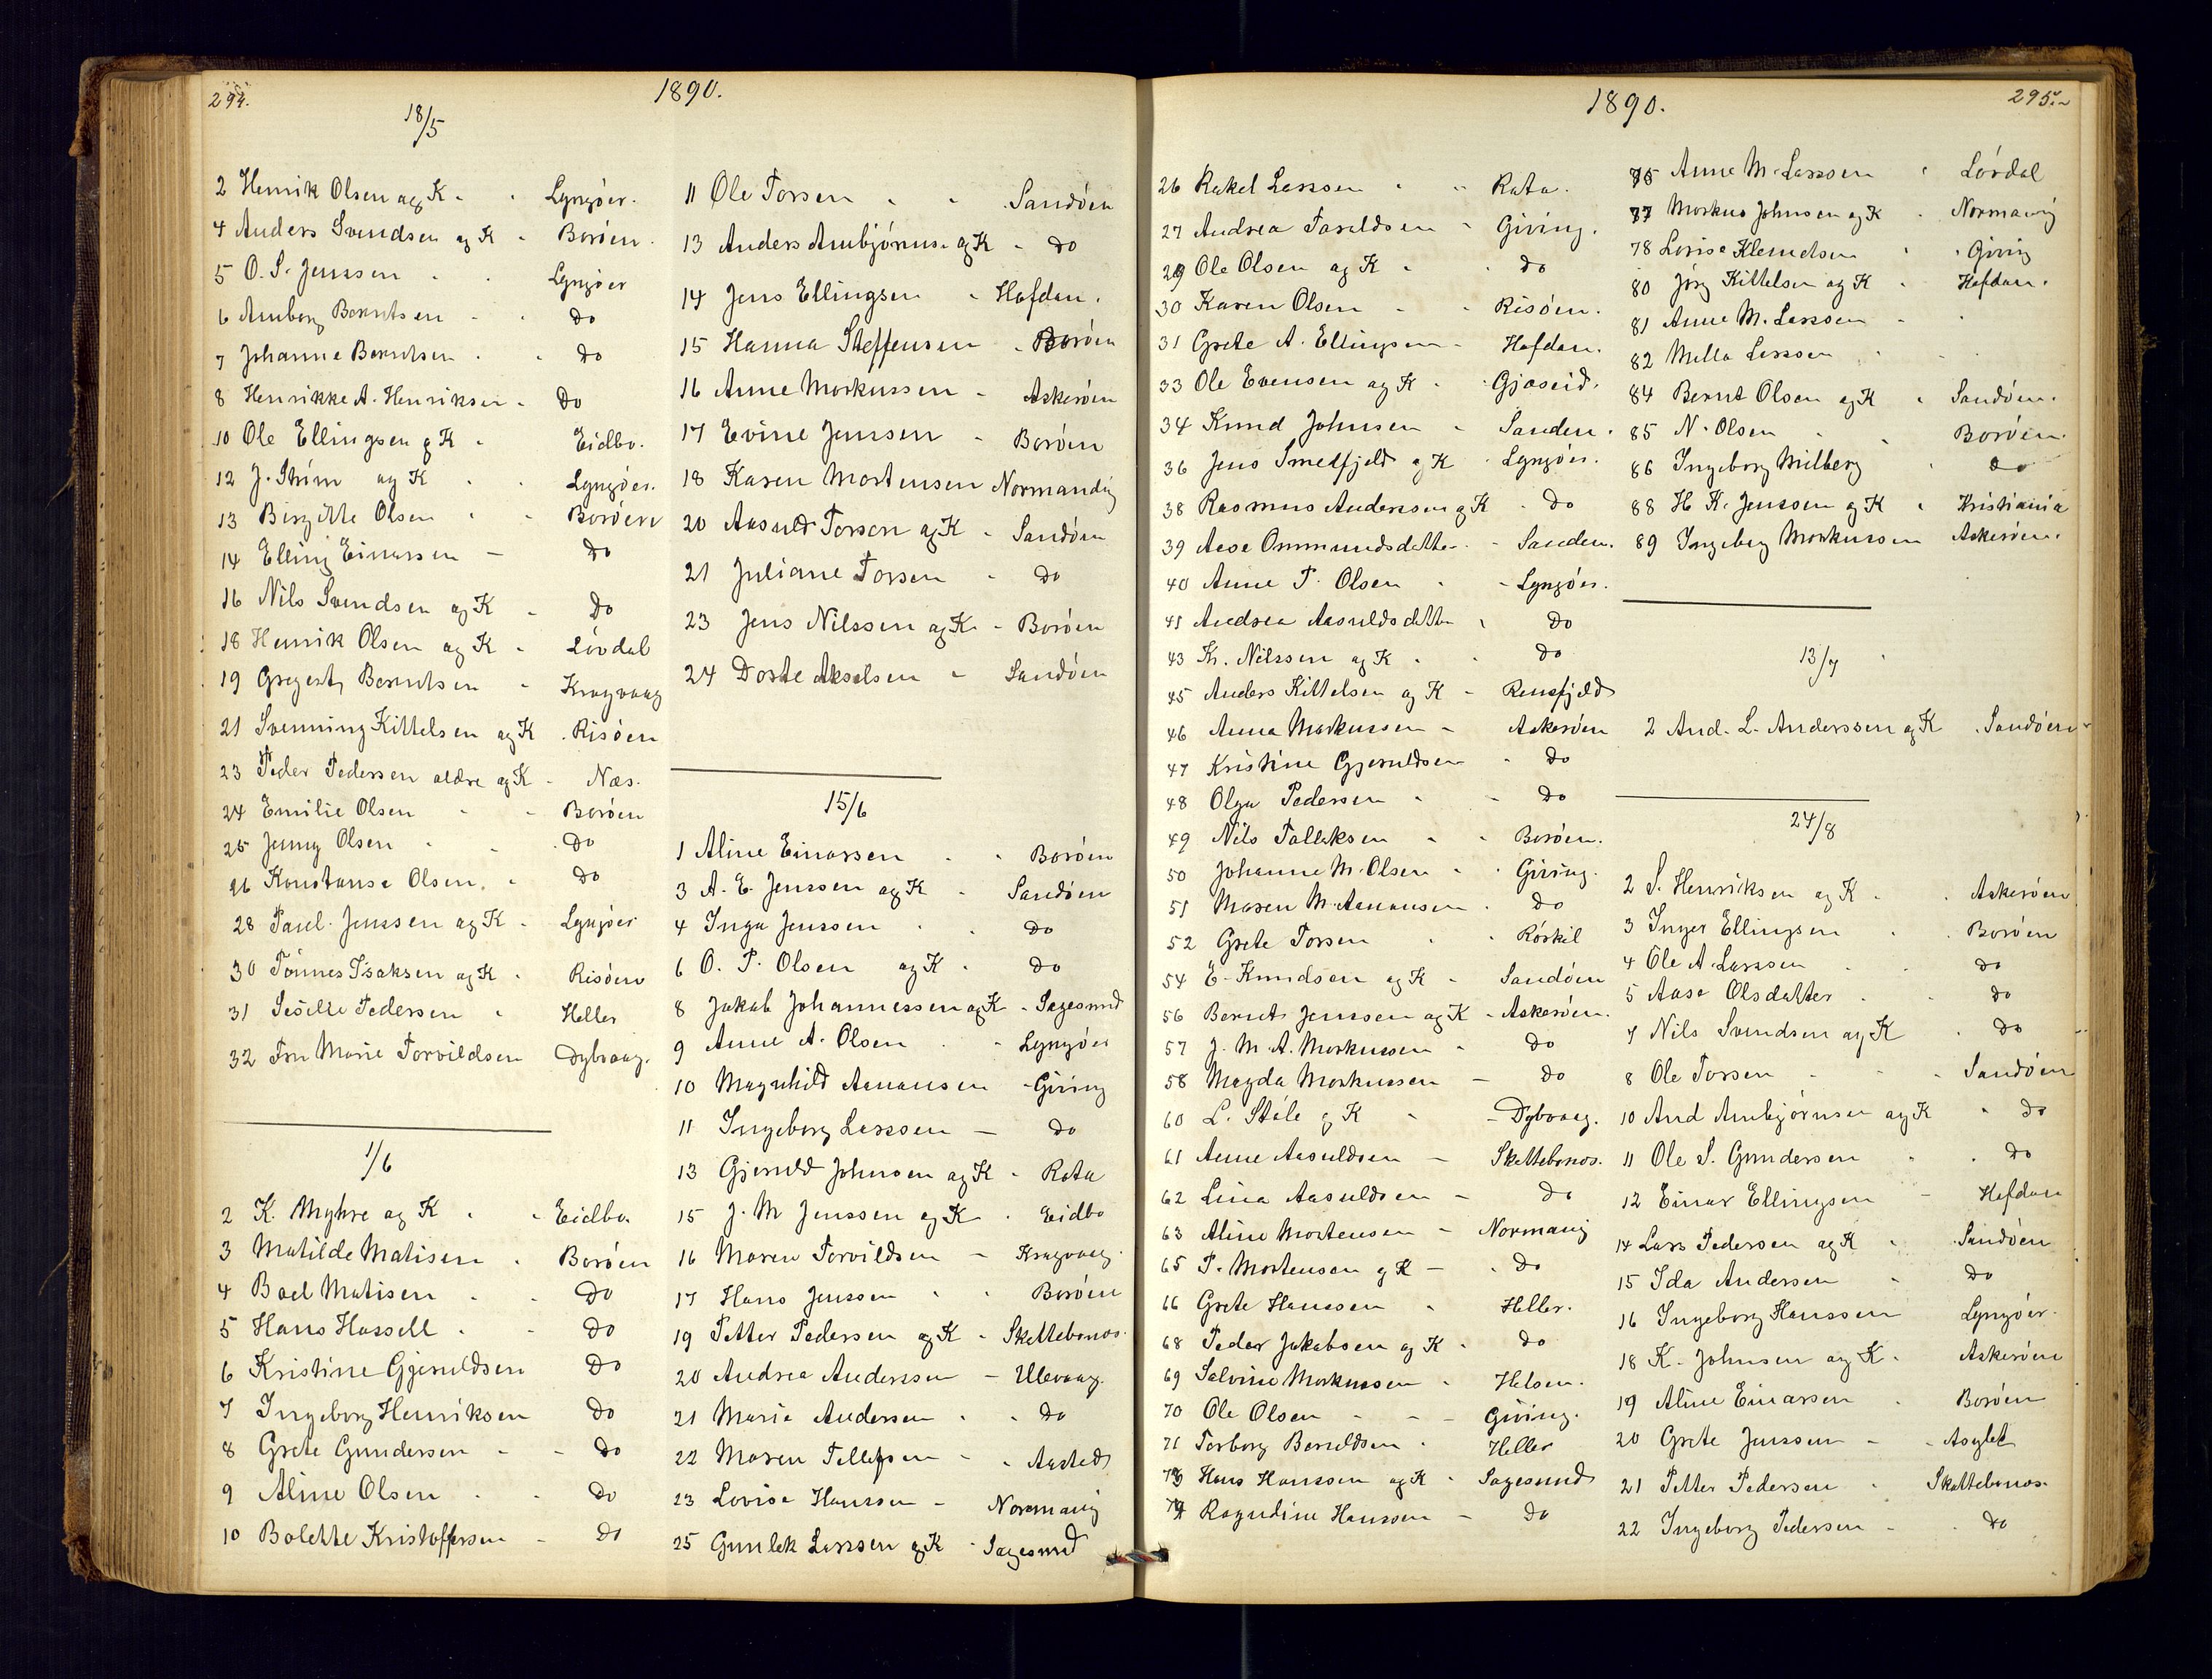 294.
1890.
18/5
2 Henrik Olsen og K - - Lyngöer.
4 Anders Svendsen og K - Boröen.
5 O. S. Jenssen - - Lyngöer
6 Amborg Berntsen - - Do
7 Johanne Berntsen - - Do
8 Henrikke A. Henriksen - Do
10 Ole Ellingsen og K - Eidbo.
12 J. Ström og K - - Lyngöer.
13 Birgitte Olsen - - Boröen
14 Elling Einarssen - Do
16 Nils Svendsen og K - Do
18 Henrik Olsen og K - Lövdal
19 Gregert Berntsen - Kragvaag
21 Svenning Kittelsen og K. Risöen
23 Peder Pedersen ældre og K - Næs.
24 Emilie Olsen - - Boröen
25 Jenny Olsen - - Do
26 Konstanse Olsen. - Do
28 Paul. Jenssen og K - Lyngöer
30 Tönnes Isaksen og K - Risöen
31 Siselie Pedersen - Heller
32 Fru Marie Torvildsen Dybvaag.
1/6
2 K. Myhre og K - - Eidbo.
3 Matilde Matisen - Boröen
4 Boel Matisen - - Do
5 Hans Hassell - - Do
6 Kristine Gjeruldsen Do
7 Ingeborg Henriksen Do
8 Grete Gundersen - - Do
9 Aline Olsen - - Do
10 Bolette Kristoffersen - Do
11 Ole Torsen - - Sandöen
13 Anders Ambjörnsen og K - Do
14 Jens Ellingsen - Hafdan.
15 Hanna Steffensen - Boröen
16 Anne Markussen - Askeröen
17 Evine Jensen - Boröen
18 Karen Mortensen Normandvig
20 Aasuld Torsen og K - Sandöen
21 Juliane Torsen - Do
23 Jens Nilssen og K - Boröen
24 Dorte Akselsen - Sandöen
15/6
1 Aline Einarssen - - Boröen
3 A. E. Jenssen og K - Sandöen
4 Inga Jenssen - - Do
6 O. P. Olsen og K - Do
8 Jakob Johannessen og K - Sagesund
9 Anne A. Olsen - - Lyngöer
10 Magnhild Aanansen - Giving
11 Ingeborg Larssen - Do
13 Gjeruld Johnsen og K - Rota
15 J. M Jenssen og K - Eidbo
16 Maren Torvildsen - Kragvaag.
17 Hans Jenssen - - Boröen
19 Petter Pedersen og K - Skottebonæs.
20 Andrea Anderssen - Ulevaag.
21 Marie Andersen - - Do
22 Maren Tellefsen - - Aasted
23 Lovise Hanssen - Normanvig
25 Gunlek Larssen og K - Sagesund
1890.
295.
26 Rakel Larssen - - Rota.
27 Andrea Taraldsen - Giving.
29 Ole Olsen og K - - Do
30 Karen Olsen - - Risöen.
31 Grete A. Ellingsen - Hafdan.
33 Ole Evensen og K - Gjæseid.
34 Knud Johnsen - Sanden.
36 Jens Smedfjeld og K - Lyngöer.
38 Rasmus Anderssen og K - Do
39 Aase Ommundsdatter - Sanden.
40 Anne P. Olsen - - Lyngöer.
41 Andrea Aasuldsdatter - Do
43 Kr. Nilssen og K - - Do
45 Anders Kittelsen og K - Rensfjeld
46 Anna Markussen - Askeröen
47 Kristine Gjeruldsen - Do
48 Olga Pedersen - - Do
49 Nils Tallaksen - - Boröen.
50 Johanne M. Olsen - - Giving.
51 Maren M. Aanansen - Do
52 Grete Torsen - - Röskil
54 E. Knudsen og K - Sandöen
56 Bernt Jenssen og K - Askeröen.
57 J. M. A. Markussen - Do
58 Magda Markussen - Do
60 L. Ståle og K - - Dybvaag.
61 Anne Aasuldsen - Skottebonæs.
62 Lina Aasuldsen - Do
63 Aline Mortensen - Normanvig
65 P. Mortensen og K - - Do
66 Grete Hanssen - Heller.
68 Peder Jakobsen og K - Do
69 Salvine Markussen - Holsen.
70 Ole Olsen - - - Giving.
71 Torborg Beruldsen - Heller
73 Hans Hanssen og K - Sagesund
74 Ragndine Hanssen - Do
75 Anne M. Larssen - Lövdal
77 Markus Johnsen og K - Normanvig
78 Lovise Klemetsen - - Giving
80 Jörg Kittelsen og K - Hafdan.
81 Anne M. Larssen - -
82 Milla Larssen - -
84 Bernt Olsen og K - Sandöen.
85 N. Olsen - - Boröen.
86 Ingeborg Milberg - Do
88 H. K. Jenssen og K - Kristiania
89 Ingeborg Markussen Askeröen.
13/7
2 And. L. Anderssen og K. Sandöen
24/8
2 S. Henriksen og K - - Askeröen
3 Inger Ellingsen - - Boröen
4 Ole A. Larssen - - Do
5 Aase Olsdatter - - Do
7 Nils Svendsen og K - Do
8 Ole Torsen - - - Sandöen
10 And Ambjörnsen og K - Do
11 Ole S. Gundersen - - Do
12 Einar Ellingsen - Hafdan
14 Lars Pedersen og K - Sandöen
15 Ida Andersen - Do
16 Ingeborg Hanssen Lyngöer.
18 K. Johnsen og K - Askeröen
19 Aline Einarsen - Boröen
20 Grete Jenssen - - Asylet
21 Petter Pedersen - Skottebonæs.
22 Ingeborg Pedersen - - Do